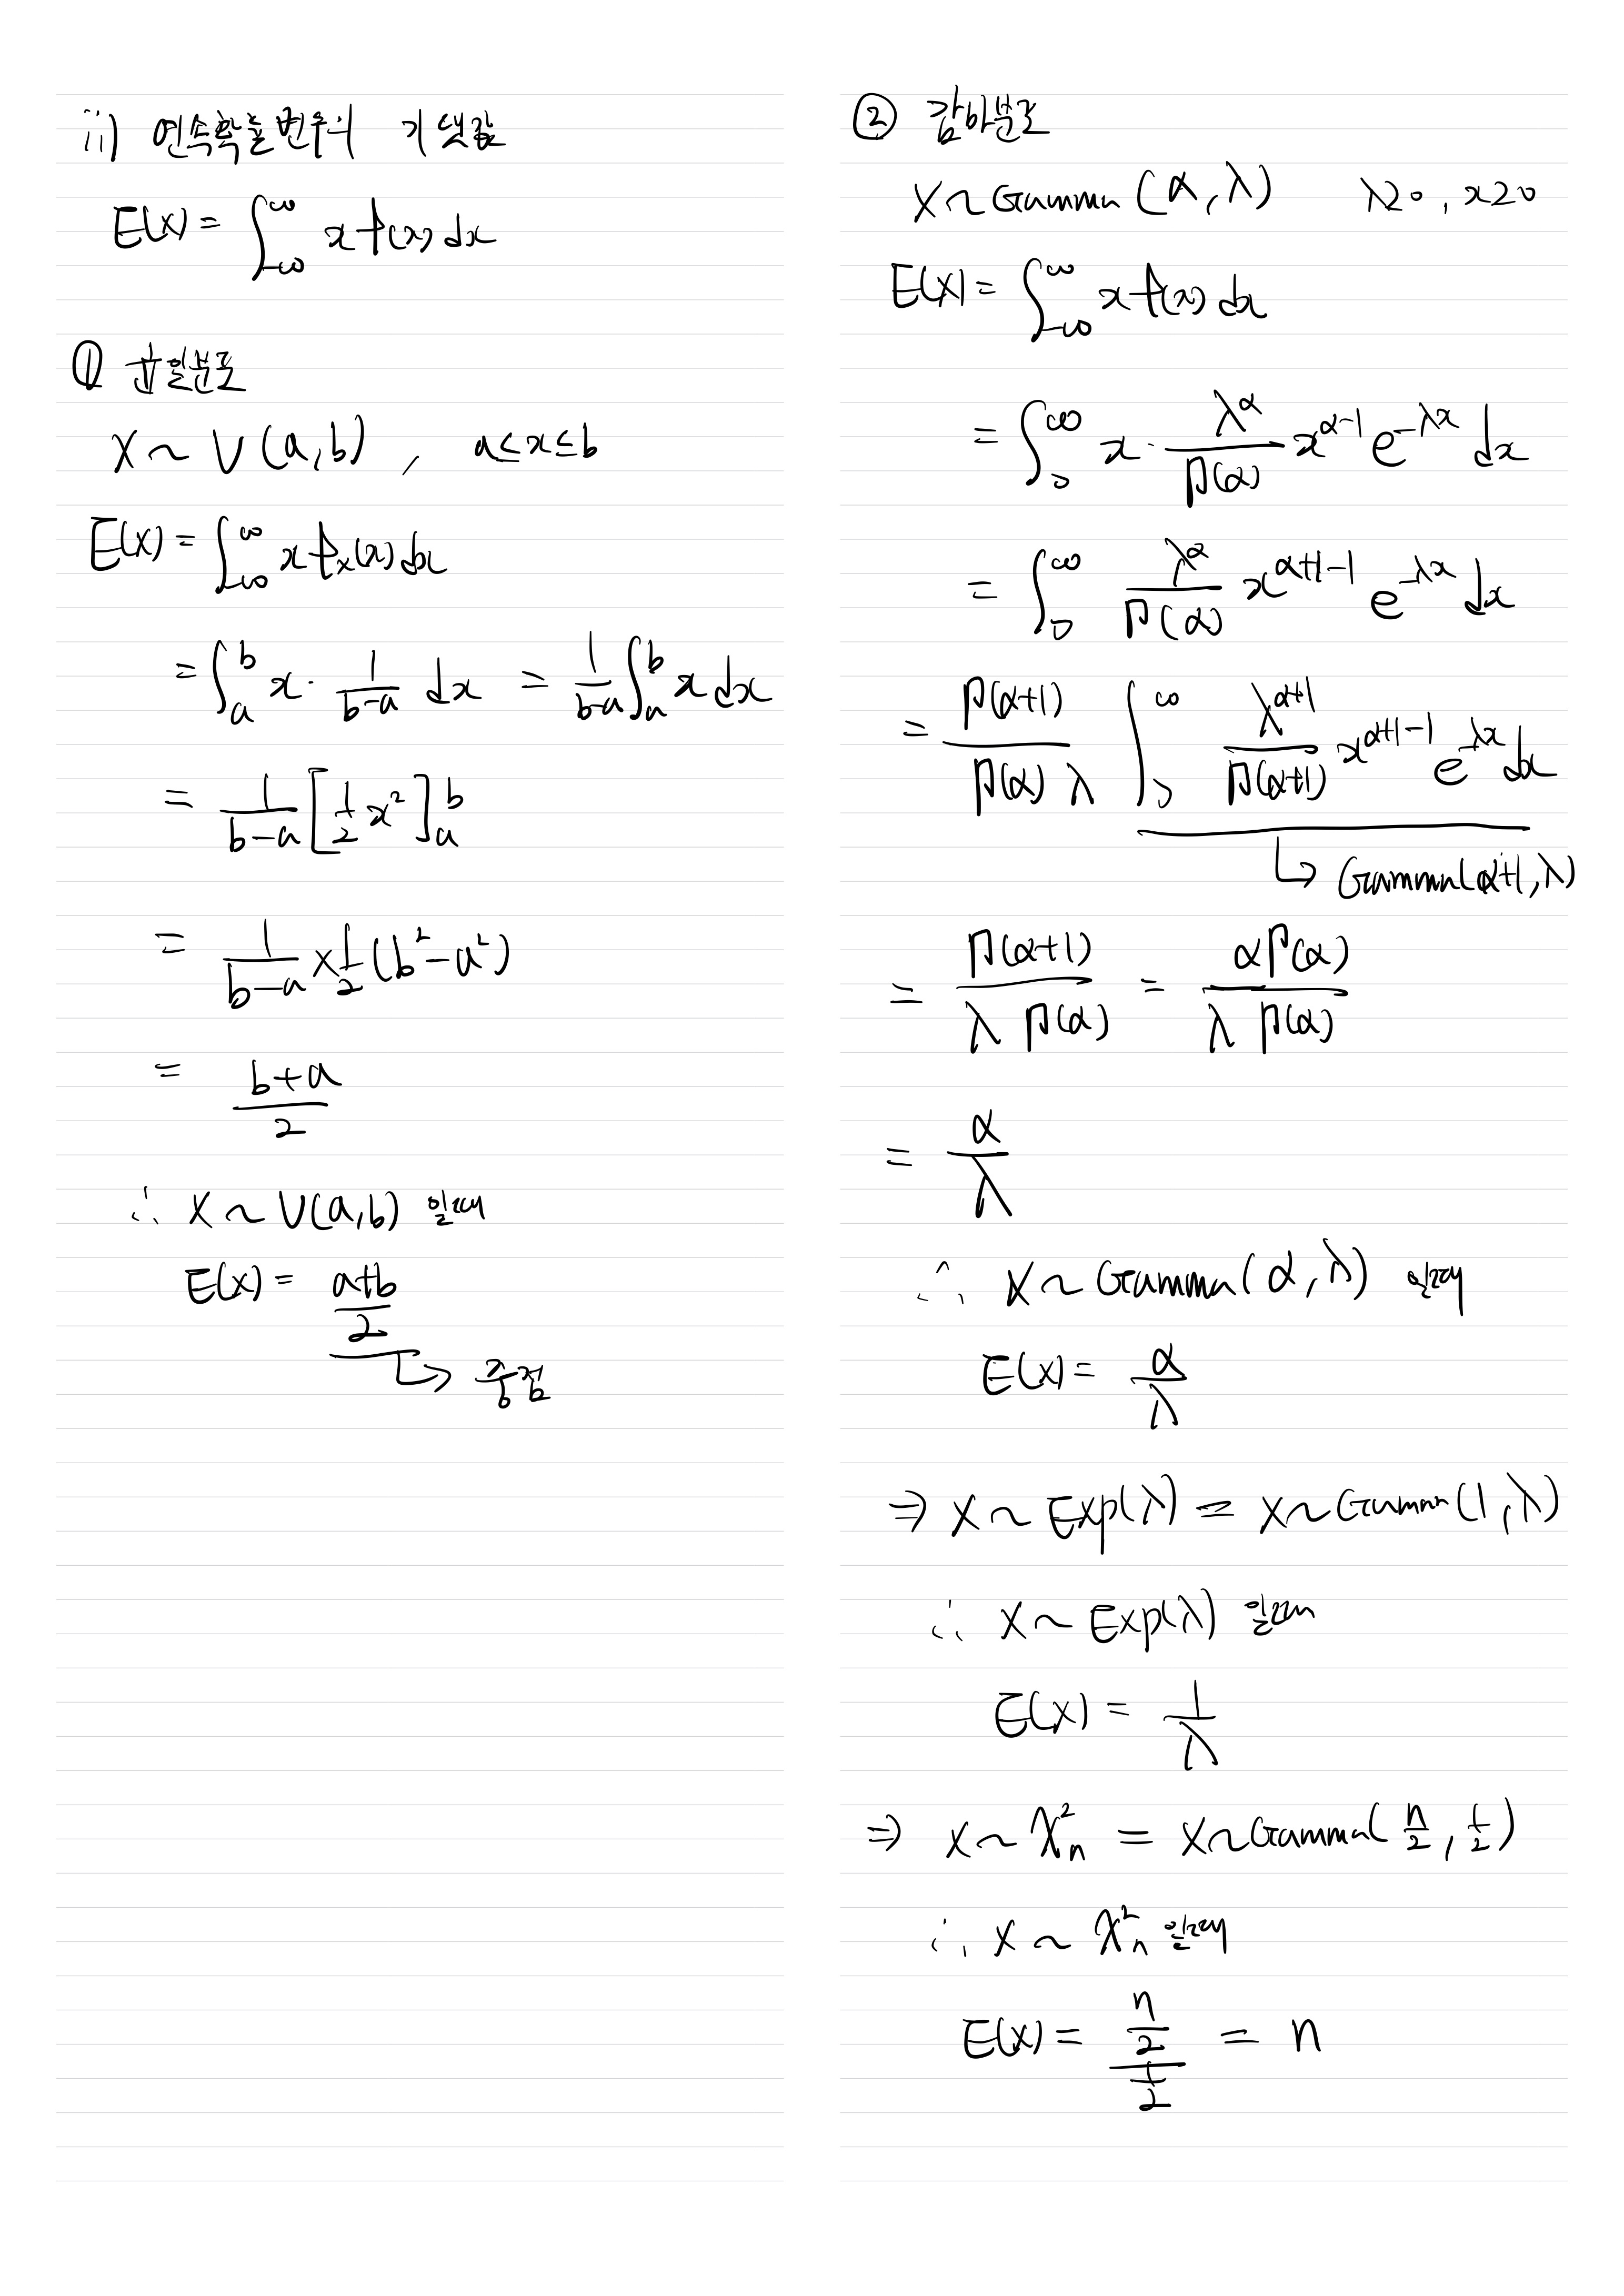 ii) 연속확률변수의 기댓값
E(x) = ∫_{-∞}^{∞} x f(x) dx
① 균일분포
X ~ U(a,b) , a≤x≤b
E(x) = ∫_{-∞}^{∞} x f_x(x) dx
= ∫_a^b x · 1/(b-a) dx = 1/(b-a) ∫_a^b x dx
= 1/(b-a) [1/2 x²]_a^b
= 1/(b-a) × 1/2 (b²-a²)
= (b+a)/2
∴ X ~ U(a,b) 일때
E(x) = (a+b)/2
↳ 중점
② 감마분포
X ~ Gamma(α,λ) λ≥0, x≥0
E(X) = ∫_{-∞}^{∞} x f(x) dx
= ∫_0^∞ x · λ^α/Γ(α) x^{α-1} e^{-λx} dx
= ∫_0^∞ λ^α/Γ(α) x^{α+1-1} e^{-λx} dx
= Γ(α+1)/(Γ(α) λ) ∫_0^∞ λ^{α+1}/Γ(α+1) x^{α+1-1} e^{-λx} dx
↳ Gamma(α+1,λ)
= Γ(α+1)/(λ Γ(α)) = αΓ(α)/(λ Γ(α))
= α/λ
∴ X ~ Gamma(α,λ) 일때
E(x) = α/λ
⇒ X ~ Exp(λ) = X ~ Gamma(1,λ)
∴ X ~ Exp(λ) 일때
E(x) = 1/λ
⇒ X ~ χ²_n = X ~ Gamma(n/2, 1/2)
∴ X ~ χ²_n 일때
E(x) = (n/2)/(1/2) = n